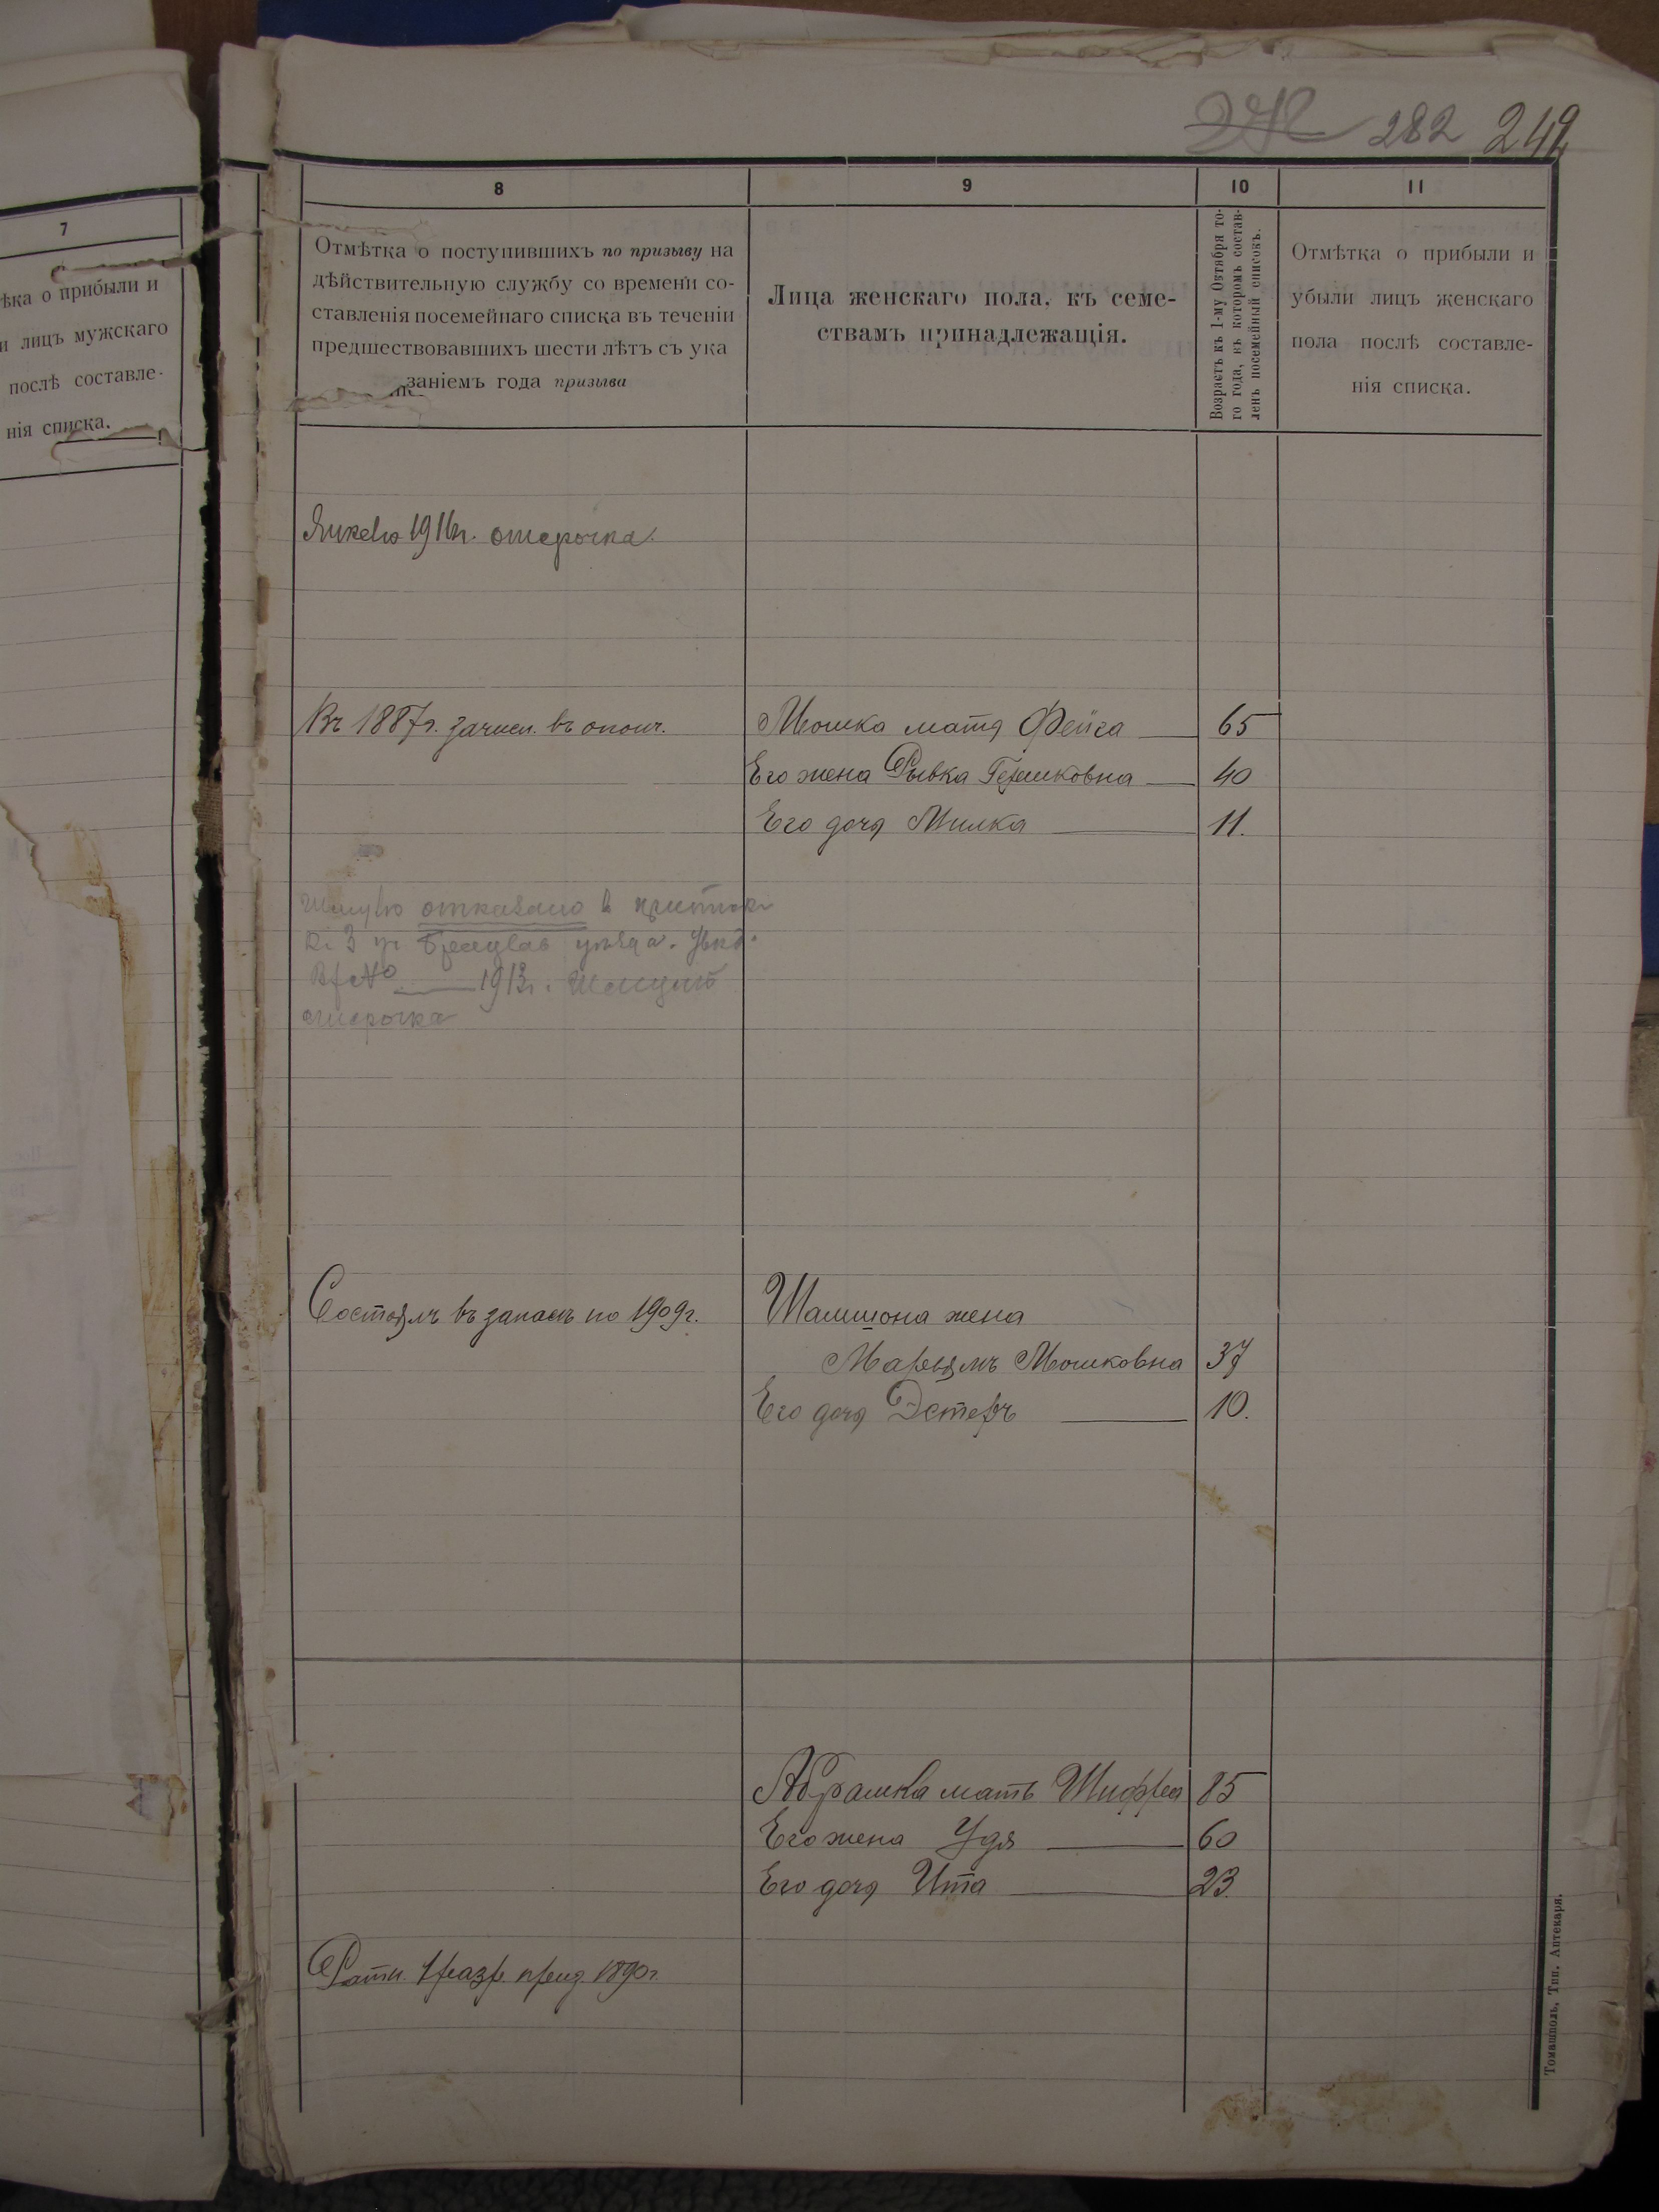 282 242
7
ѣка о прибыли и
и лицъ мужскаго
послѣ составле-
нія списка.
8
9
10
11
Отмѣтка о поступившихъ по призыву на
дѣйствительную службу со времени со-
ставленія посемейнаго списка въ теченіи
предшествовавшихъ шести лѣтъ съ ука
заніемъ года призыва
Лица женскаго пола, къ семе-
ствамъ принадлежащія.
Возрастъ къ 1-му Октября то-
го года, въ которомъ состав-
ленъ посемейный списокъ.
Отмѣтка о прибыли и
убыли лицъ женскаго
пола послѣ составле-
нія списка.
1916г. отсрочка.
Въ 1887г. зачисл. въ ополч.
Мошка мать Фейга 65
Его жена Рывка Гершковна 40
Его дочь Милка 11.
отказано в
1913г.
отсрочка
Состоялъ въ запасѣ по 1909г.
Шамшона жена
Марьямъ Мошковна 37
Его дочь Эстеръ 10.
Абрамка мать Шифра 85
Его жена Удя 60
Его дочь Ита 23.
Ратн. 1 разр. приз. 1890г.
Томашполь, Тип. Аптекаря.